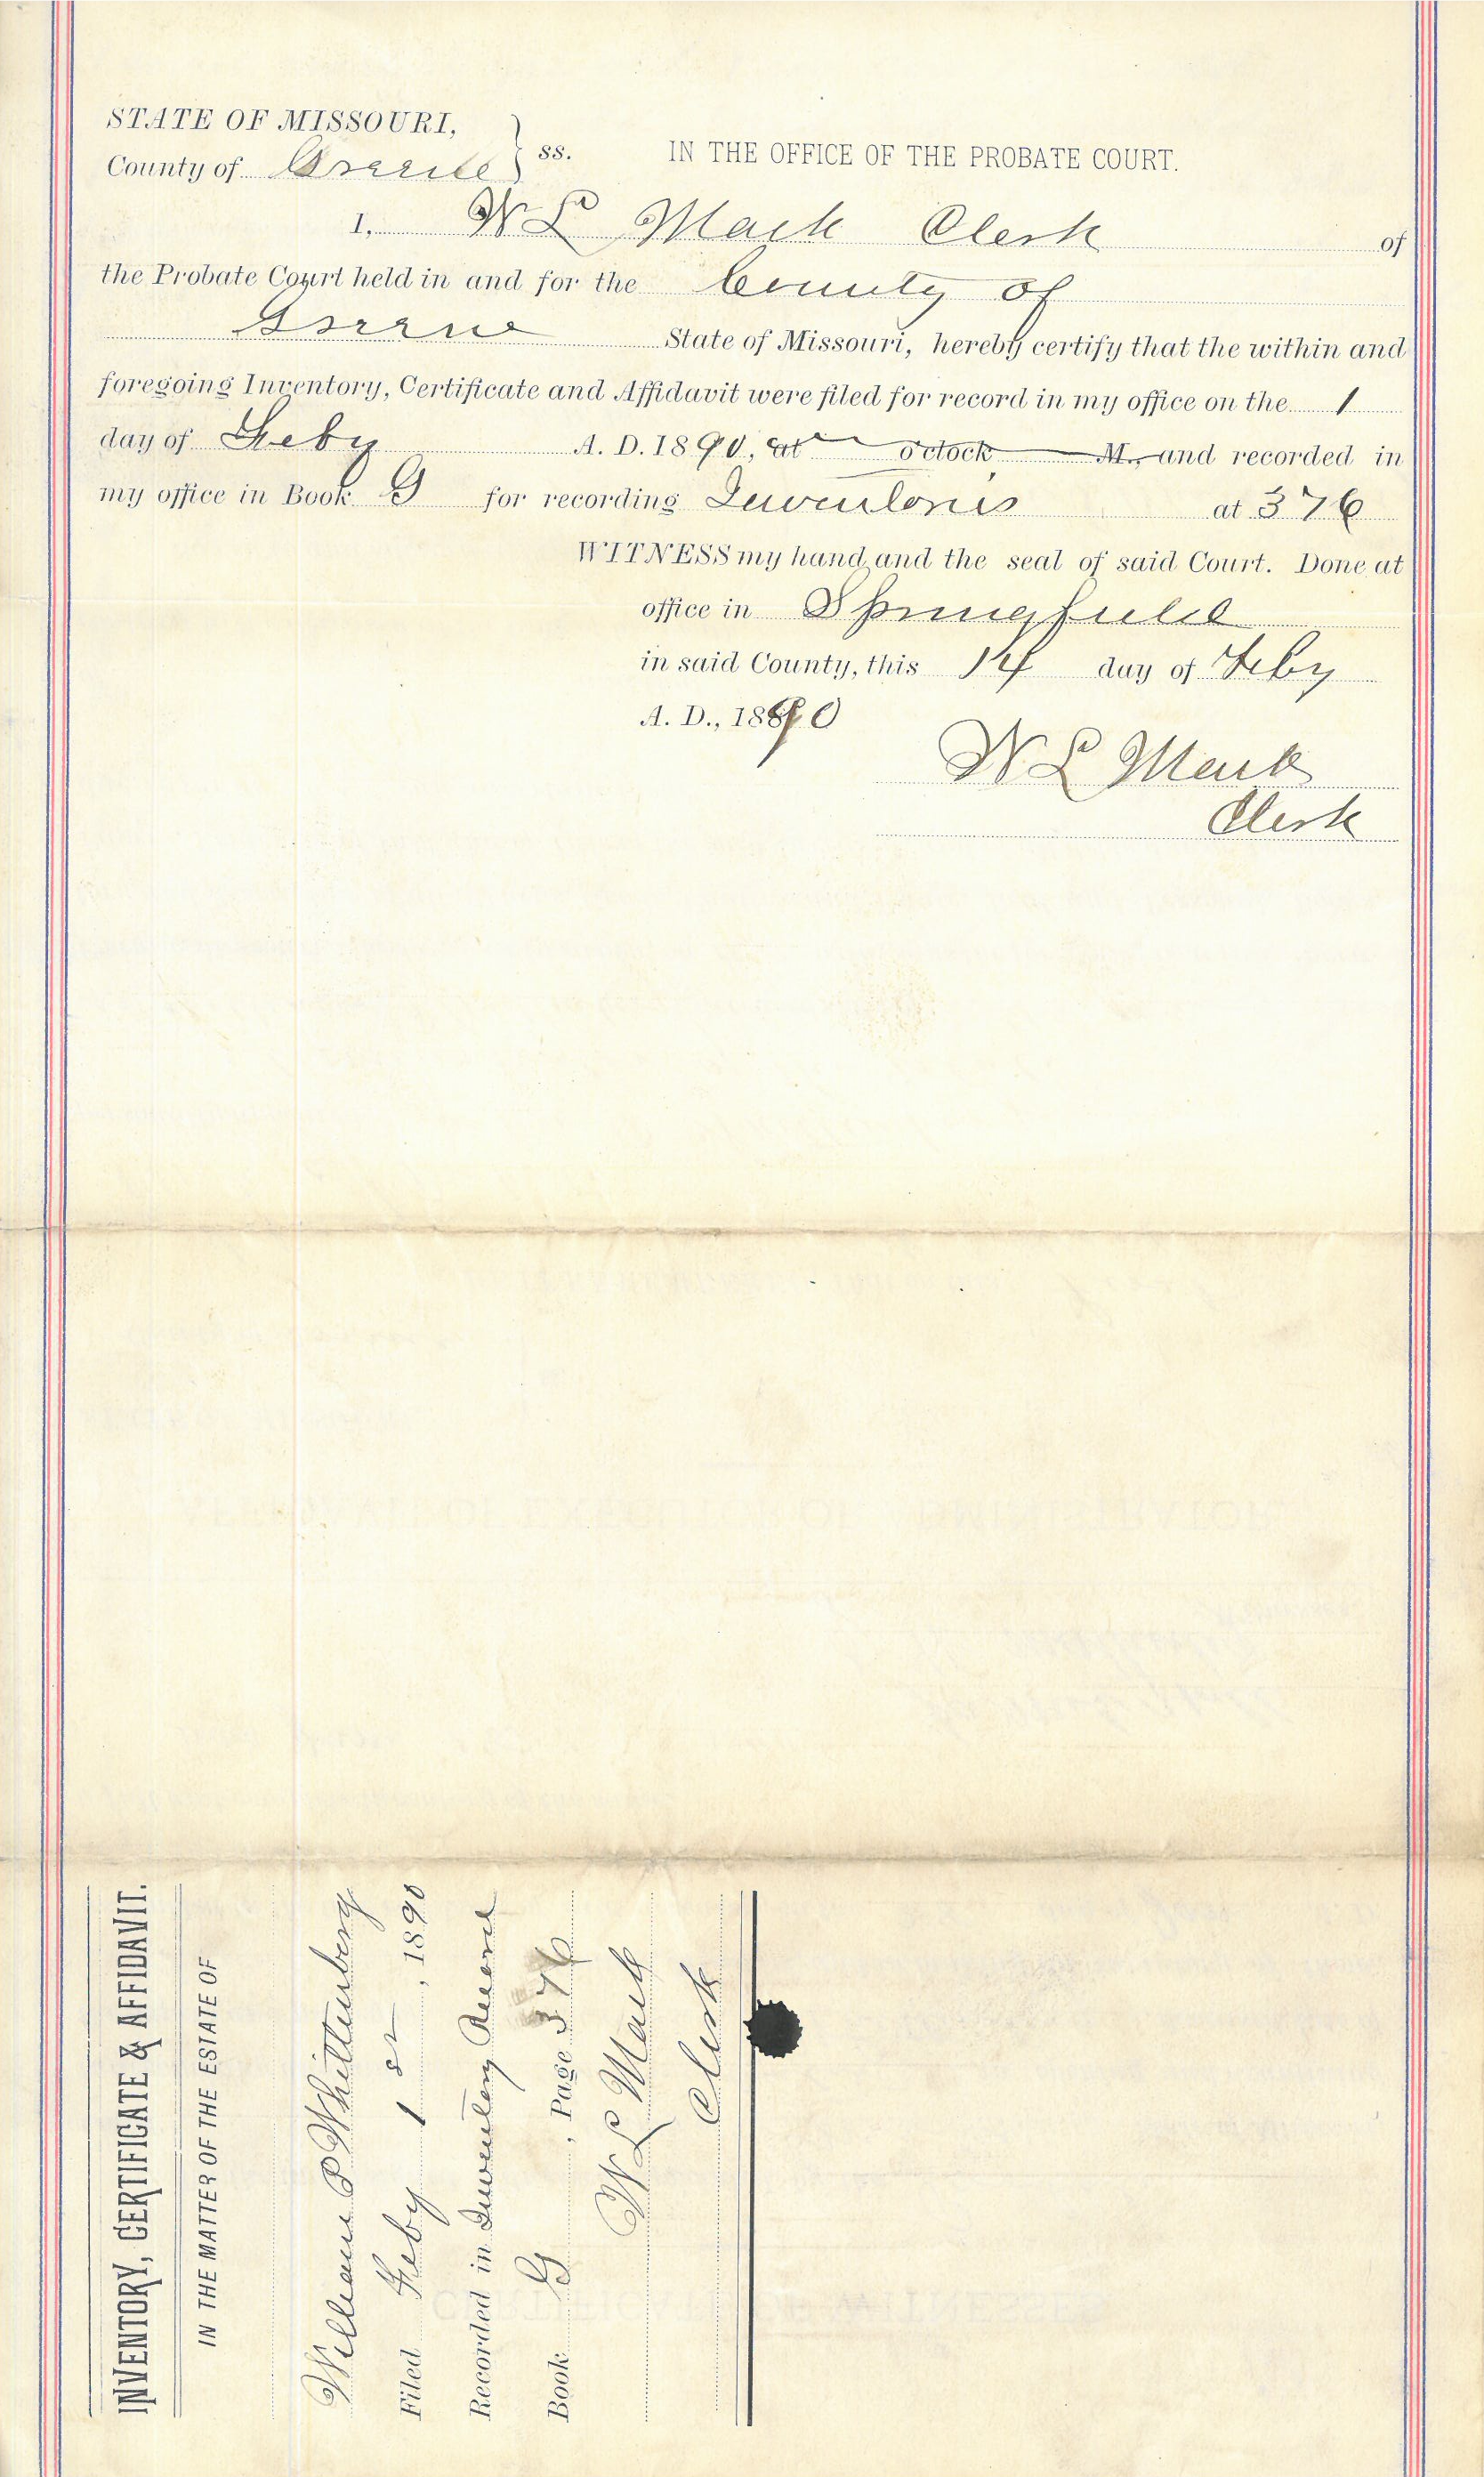 STATE OF MISSOURI,
County of Greene } ss. IN THE OFFICE OF THE PROBATE COURT.
I, W L Mack Clerk of
the Probate Court held in and for the County of
Greene State of Missouri, hereby certify that the within and
foregoing Inventory, Certificate and Affidavit were filed for record in my office on the 1
day of Feby A. D. 1890, at o'clock M., and recorded in
my office in Book G for recording Inventories at 376
WITNESS my hand and the seal of said Court. Done at
office in Springfield
in said County, this 14 day of Feby
A. D., 1890
W L Mack
Clerk
INVENTORY, CERTIFICATE & AFFIDAVIT.
IN THE MATTER OF THE ESTATE OF
William P Whittenberg
Filed Feby 1st, 1890
Recorded in Inventory Record
Book G, Page 376
W L Mack
Clerk